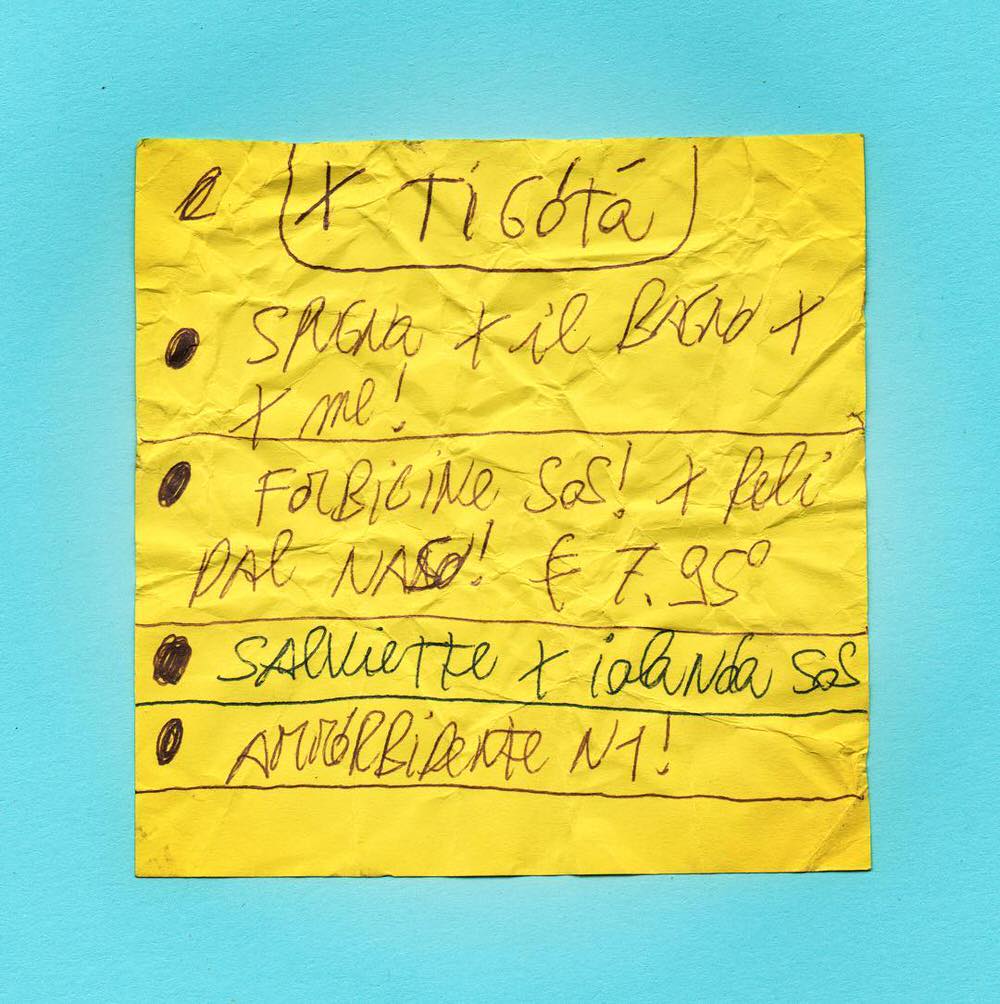 X TiGótá
SPUGNa X il BAGNO X
X me!
FORBiCiNe SOS! X peli
DAl NASO! € 7.95°
SAlViETTe X iolaNda SOS
AMMÓRBiDeNTe N1!